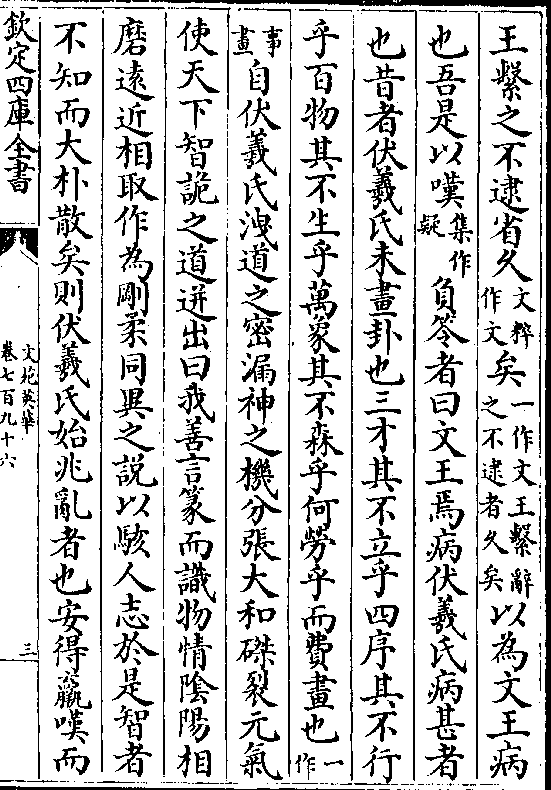 王繫之不逮省久文粹作文矣一作文王繫辭之不逮者久矣以為文王病
也吾是以嘆集作疑負笭者曰文王焉病伏羲氏病甚者
也昔者伏羲氏未畫卦也三才其不立乎四序其不行
乎百物其不生乎萬象其不森乎何勞乎而費畫也一作
事畫自伏羲氏洩道之密漏神之機分張大和磔裂元氣
使天下智詭之道迸出曰我善言篆而識物情陰陽相
磨遠近相取作為剛柔同異之說以駭人志於是智者
不知而大朴散矣則伏羲氏始兆亂者也安得羸嘆而
欽定四庫全書
文苑英華
卷七百九十六
三